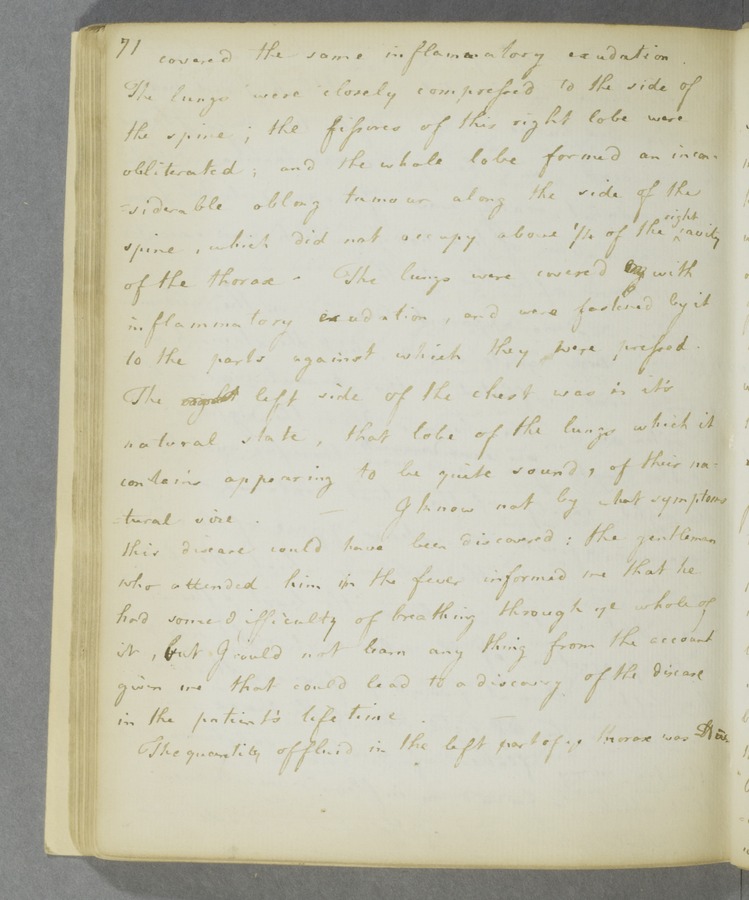 71 covered the same inflammatory exudation.
The lungs were closely compressed to the side of
the spine; the fissures of this right lobe were
obliterated; and the whole lobe formed an incon-
-siderable oblong tumour along the side of the
spine, which did not occupy above of the right cavity
of the thorax - The lungs were covered with
inflammatory exudation, and were fastened by it
to the parts against which they were pressed.
The left side of the chest was in it's
natural state, that lobe of the lungs which it
contains appearing to be quite sound, & of their na-
-tural size. — I know not by what symptoms
this disease could have been discovered: the gentleman
who attended him in the fever informed me that he
had some difficulty of breathing through ye whole of
it, but I could not learn any thing from the account
given me that could lead to a discovery of the disease
in the patient's life time.
The quantity of fluid in the left part of ye thorax was